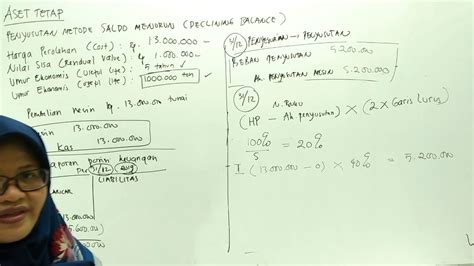 ASET TETAP
PENYUSUTAN METODE SALDO MENURUN (DECLINING BALANCE)
Harga Perolehan (Cost) : Rp. 13.000.000
Nilai Sisa (Residual Value) : Rp. 1.000.000
Umur Ekonomis (Useful Life) : 5 tahun ✓
Umur Ekonomis (Useful Life) : 1000.000 ton
Pembelian mesin Rp. 13.000.000 tunai
13.000.000
Kas 13.000.000
Laporan posisi keuangan
Per 31/12 2019
LIABILITAS
13.000.000
(5.600.000)
31/12 Penyesuaian → Penyusutan
BEBAN PENYUSUTAN 5.200.000
Ak. Penyusutan Mesin 5.200.000
31/12 N. Buku
(HP - Ak penyusutan) × (2 × Garis Lurus)
100% = 20%
5
I (13.000.000 - 0) × 40% = 5.200.000